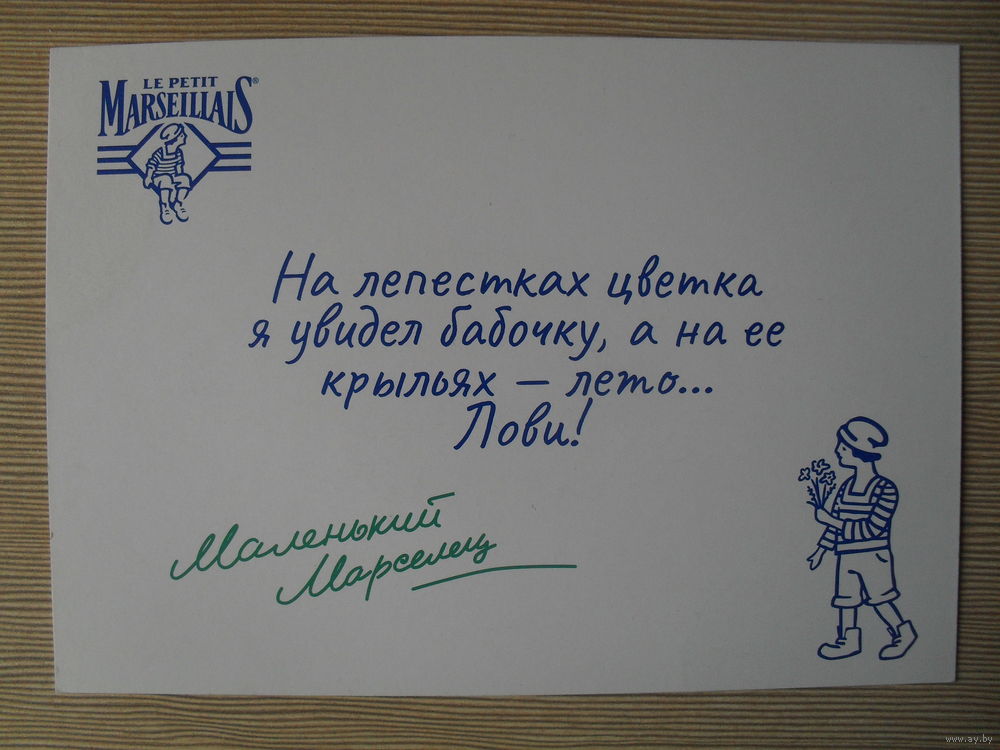 LE PETIT
MARSEILLAIS®
На лепестках цветка
я увидел бабочку, а на ее
крыльях – лето...
Лови!
Маленький
Марселец
www.ay.by